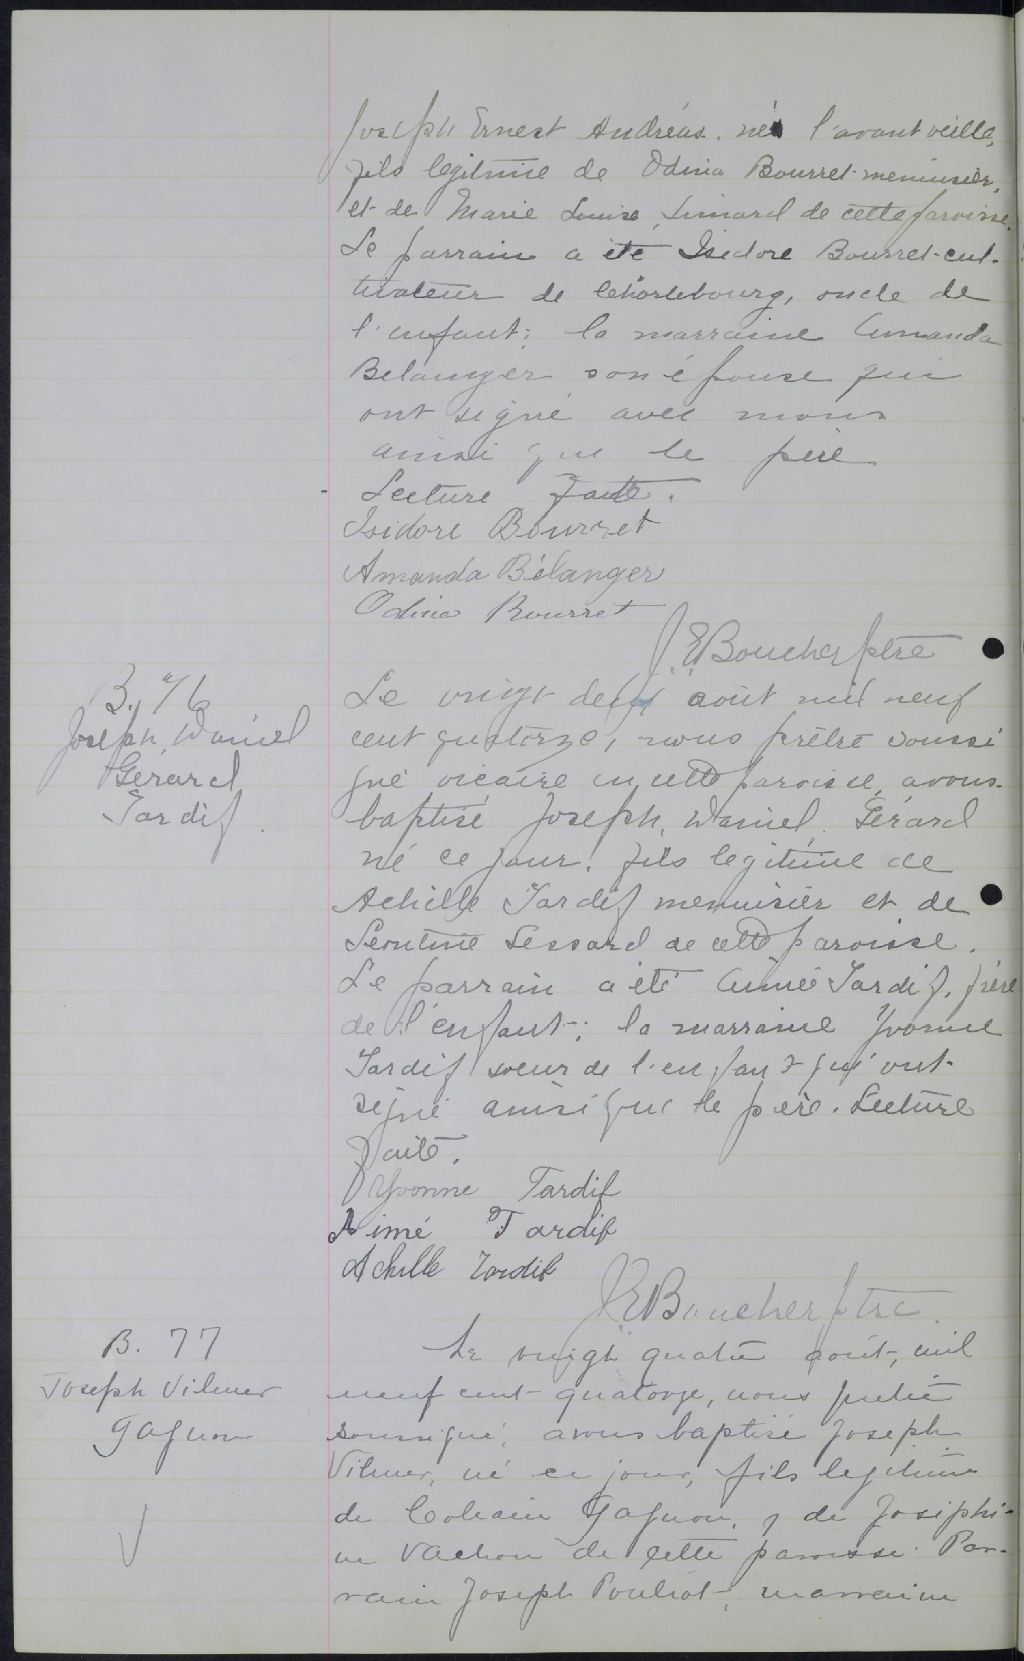 Joseph Ernest Andréas. né l'avant veille,
fils legitime de Odina Bourret menuisier,
et de Marie Louise Simard de cette paroisse.
Le parrain a été Isidore Bourret-cul-
tivateur de Charlebourg, oncle de
l'enfant; la marraine Amanda
Belanger son épouse qui
ont signé avec nous
ainsi que le père
Lecture faite.
Isidore Bourret
Amanda Bélanger
Odina Bourret
J. E Boucher ptre
B. 76
Joseph, Daniel
Gérard
Tardif.
Le vingt deux août mil neuf
cent quatorze, nous prêtre soussi
gné vicaire en cette paroisse, avons
baptisé Joseph, Daniel, Gérard
né ce jour, fils legitime de
Achille Tardif menuisier et de
Léontine Lessard de cette paroisse.
Le parrain a été Aimé Tardif, frère
de l'enfant; la marraine Yvonne
Tardif soeur de l'enfant qui ont
signé ainsi que le père. Lecture
faite.
Yvonne Tardif
Aimé Tardif
Achille Tardif
J. E Boucher ptre.
B. 77
Joseph Vilmer
Gagnon
Le vingt quatre août, mil
neuf cent quatorze, nous prêtre
soussigné, avons baptisé Joseph
Vilmer, né ce jour, fils legitime
de Gagnon, & de Josephi-
ne Vachon de cette paroisse. Par-
rain Joseph Pouliot, marraine